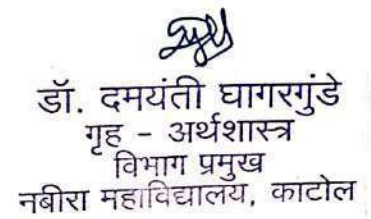 डॉ. दमयंती घागरगुंडे
गृह - अर्थशास्त्र
विभाग प्रमुख
नबीरा महाविद्यालय, काटोल